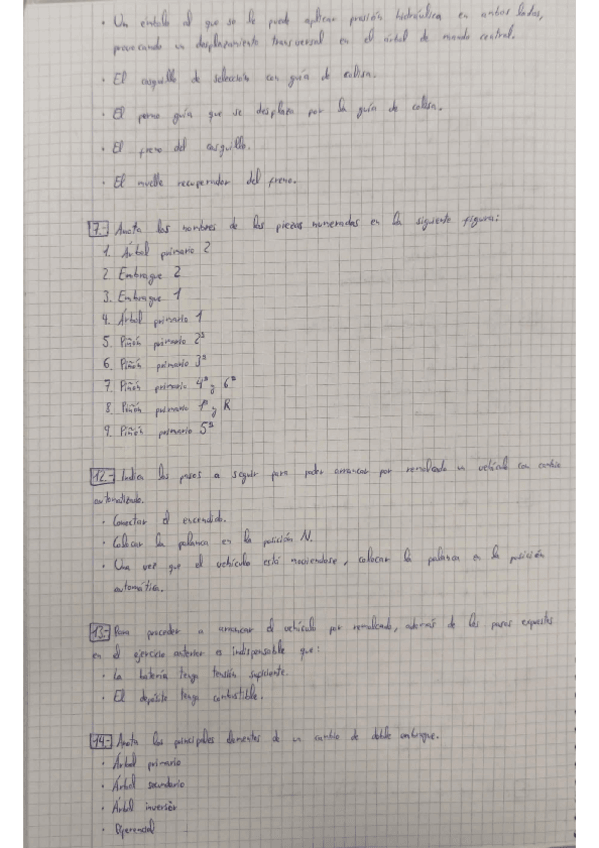 · Un émbolo al que se le puede aplicar presión hidráulica en ambos lados,
provocando un desplazamiento transversal en el árbol de mando central.
· El casquillo de selección con guía de colisa.
· El perno guía que se desplaza por la guía de colisa.
· El freno del casquillo.
· El muelle recuperador del freno.
7.- Anota los nombres de las piezas numeradas en la siguiente figura:
1. Árbol primario 2
2. Embrague 2
3. Embrague 1
4. Árbol primario 1
5. Piñón primario 2ª
6. Piñón primario 3ª
7. Piñón primario 4ª y 6ª
8. Piñón primario 1ª y R
9. Piñón primario 5ª
12.- Indica los pasos a seguir para poder arrancar por remolcado un vehículo con cambio
automatizado.
· Conectar el encendido.
· Colocar la palanca en la posición N.
· Una vez que el vehículo está moviendose, colocar la palanca en la posición
automática.
13.- Para proceder a arrancar el vehículo por remolcado, además de los pasos expuestos
en el ejercicio anterior es indispensable que:
· La batería tenga tensión suficiente.
· El depósito tenga combustible.
14.- Anota los principales elementos de un cambio de doble embrague.
· Árbol primario
· Árbol secundario
· Árbol inversór
· Diferencial